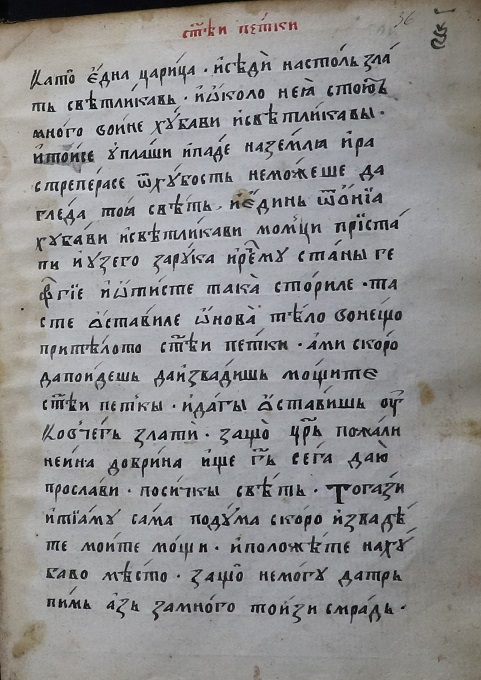 ст҃еи петки
36
като една царица · исѣди настоль зла
ть свѣтликавь · иѡколо нея стоютъ
много воине хубави исвѣтликавы ·
итоисе уплаши ипаде наземлꙗ ира
стрепера се ѿхубость неможеше да
гледа тоꙗ свѣть · иединь ѿонїа
хубави исвѣтликави момци прїста
пи иузего зарука ирече му станы ге
ѡргїе иѡтисте така сториле · та
сте ѡставиле ѡнова тѣло вонещо
притѣлото ст҃еи петки · ами скоро
дапоидешь даизвадишь мощите
ст҃еи петкы · идагы ѡставишь оу
ковчегь злати · защо цр҃ь пожали
неина добрина ище гь҃ сега даю
прослави · посичкы свѣть · Тогази
итїаму сама подума скоро извадѣ
те моите мощи · иположѣте наху
баво мѣсто · защо немогу датрь
пимь азь замного тоизи смрадь ·